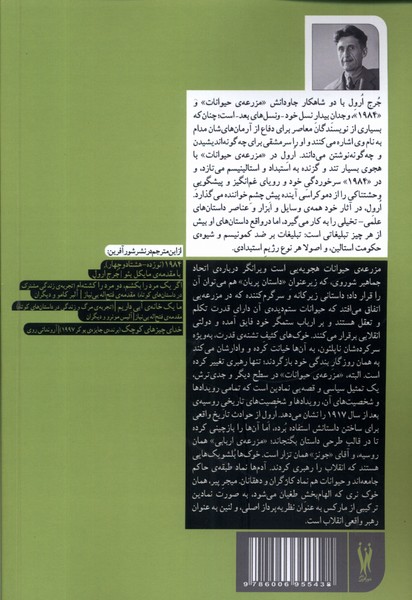 جُرج اُرول با دو شاهکار جاودانش «مزرعه‌ی حیوانات» و
«۱۹۸۴»، وجدان بیدار نسل خود - ونسل‌های بعد - است؛ چنان‌که
بسیاری از نویسندگان معاصر برای دفاع از آرمان‌های‌شان مدام
به نام وی اشاره می‌کنند و او را سرمشقی برای چه‌گونه‌اندیشیدن
و چه‌گونه‌نوشتن می‌دانند. اُرول در «مزرعه‌ی حیوانات» با
هجوی بسیار تند و گزنده به استبداد و استالینیسم می‌تازد، و
در «۱۹۸۴» سرخوردگی خود و رویای غم‌انگیز و پیشگویی
وحشتناکی را از دموکراسی آینده پیش چشم خواننده می‌گذارد.
اُرول، در آثار خود همه‌ی وسایل و ابزار و عناصر داستان‌های
علمی - تخیلی را به کار می‌گیرد، اما درواقع داستان‌های او بیش
از هر چیز تبلیغاتی است: تبلیغات بر ضد کمونیسم و شیوه‌ی
حکومت استالین، و اصولا هر نوع رژیم استبدادی.
از این مترجم در نشر شورآفرین:
۱۹۸۴ (نوزده-هشتادوچهار)
با مقدمه‌ی مایکل پئو | جرج ارول
خدای چیزهای کوچک
مزرعه‌ی حیوانات هجویه‌یی است ویرانگر درباره‌ی اتحاد
جماهیر شوروی، که زیرعنوانِ «داستان پریان» هم بر آن
قرار داد؛ داستانی زیرکانه و سرگرم‌کننده که در مزرعه‌یی
اتفاق می‌افتد که حیوانات ستم‌دیده‌ی آن دارای قدرت تکلم
و تعقل هستند و بر ارباب ستمگر خود فایق آمده و دولتی
انقلابی برقرار می‌کنند. خوک‌های کثیف تشنه‌ی قدرت، به‌ویژه
سرکرده‌شان ناپلئون، به آن‌ها خیانت کرده و وادارشان می‌کند
به همان روزگار بندگی خود بازگردند؛ تنها رهبری تغییر کرده
است. البته، «مزرعه‌ی حیوانات» در سطح دیگر و جدی‌ترش،
یک تمثیل سیاسی و قصه‌یی نمادین است که تمامی رویدادها
و شخصیت‌های آن، رویدادها و شخصیت‌های تاریخی روسیه‌ی
بعد از سال ۱۹۱۷ را نشان می‌دهد. اُرول از حوادث تاریخ واقعی
برای ساختن داستانش استفاده بُرده، اما آن‌ها را بازچینی کرده
تا در قالب طرحی داستان بگنجاند؛ «مزرعه‌ی اربابی» همان
روسیه، و آقای «جونز» همان تزار است. خوک‌ها بُلشویک‌هایی
هستند که انقلاب را رهبری کردند. آدم‌ها نماد طبقه‌ی حاکم
جامعه‌اند و حیوانات هم نماد کارگران و دهقانان. میجر پیر، همان
خوک نری که الهام‌بخش طغیان می‌شود، به صورت نمادین
ترکیبی از مارکس به عنوان نظریه‌پرداز اصلی، و لنین به عنوان
رهبر واقعی انقلاب است.
9 786006 955438